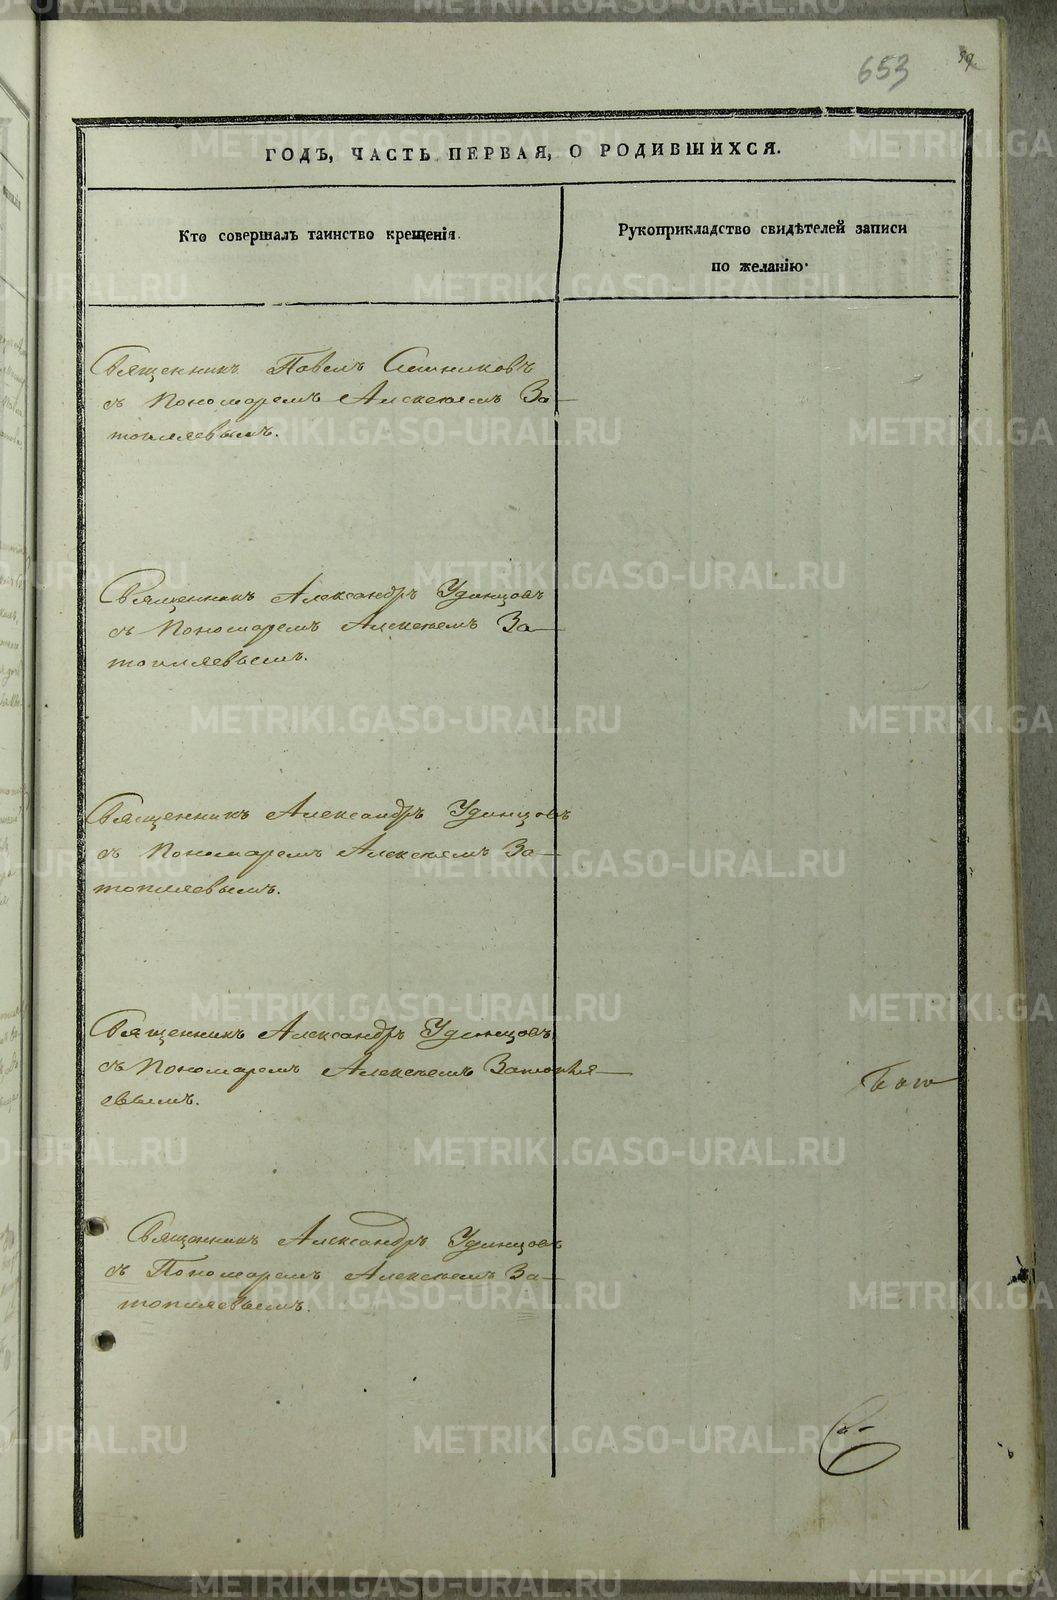 653
ГОДЪ, ЧАСТЬ ПЕРВАЯ, О РОДИВШИХСЯ.
Кто совершалъ таинство крещенія.
Рукоприкладство свидѣтелей записи
по желанію.
Священникъ Павелъ
съ Пономаремъ Алексѣемъ За-
топляевымъ.
Священникъ Александръ Удинцовъ
съ Пономаремъ Алексѣемъ За-
топляевымъ.
Священникъ Александръ Удинцовъ
съ Пономаремъ Алексѣемъ За-
топляевымъ.
Священникъ Александръ Удинцовъ
съ Пономаремъ Алексѣемъ Затопля-
евымъ.
Священникъ Александръ Удинцовъ
съ Пономаремъ Алексѣемъ За-
топляевымъ.
METRIKI.GASO-URAL.RU